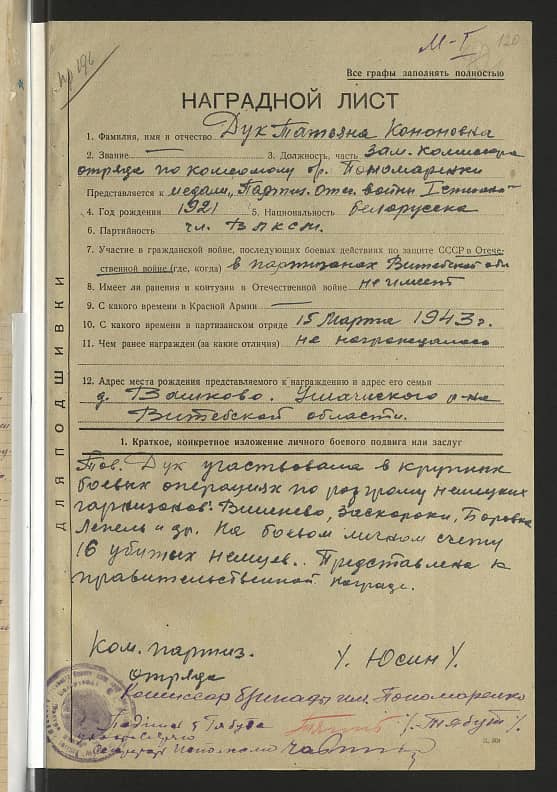 М-I 120
Все графы заполнять полностью
НАГРАДНОЙ ЛИСТ
1. Фамилия, имя и отчество Дук Татьяна Кононовна
2. Звание — 3. Должность, часть Зам. комиссара
отряда по комсомолу бр. Пономаренко
Представляется к медали „Партиз. Отеч. войны I степени
4. Год рождения 1921 5. Национальность белорусска
6. Партийность чл. ВЛКСМ.
7. Участие в гражданской войне, последующих боевых действиях по защите СССР в Отече-
ственной войне (где, когда) в партизанах Витебской обл
8. Имеет ли ранения и контузии в Отечественной войне не имеет
9. С какого времени в Красной Армии —
10. С какого времени в партизанском отряде 15 Марта 1943 г.
11. Чем ранее награжден (за какие отличия) не награждалась
12. Адрес места рождения представляемого к награждению и адрес его семьи
д. Вашково. Ушачского р-на
Витебской области.
1. Краткое, конкретное изложение личного боевого подвига или заслуг
Тов. Дук участвовала в крупных
боевых операциях по розгрому немецких
гарнизонов: Вишнево, Заскорки, Боровка
Лепель и др. На боевом личном счету
16 убитых немцев.. Представлена к
правительственной награде.
Ком. партиз.
отряда
У. Юсин У.
Комиссар бригады им. Пономаренко
Тябут
ДЛЯ ПОДШИВКИ